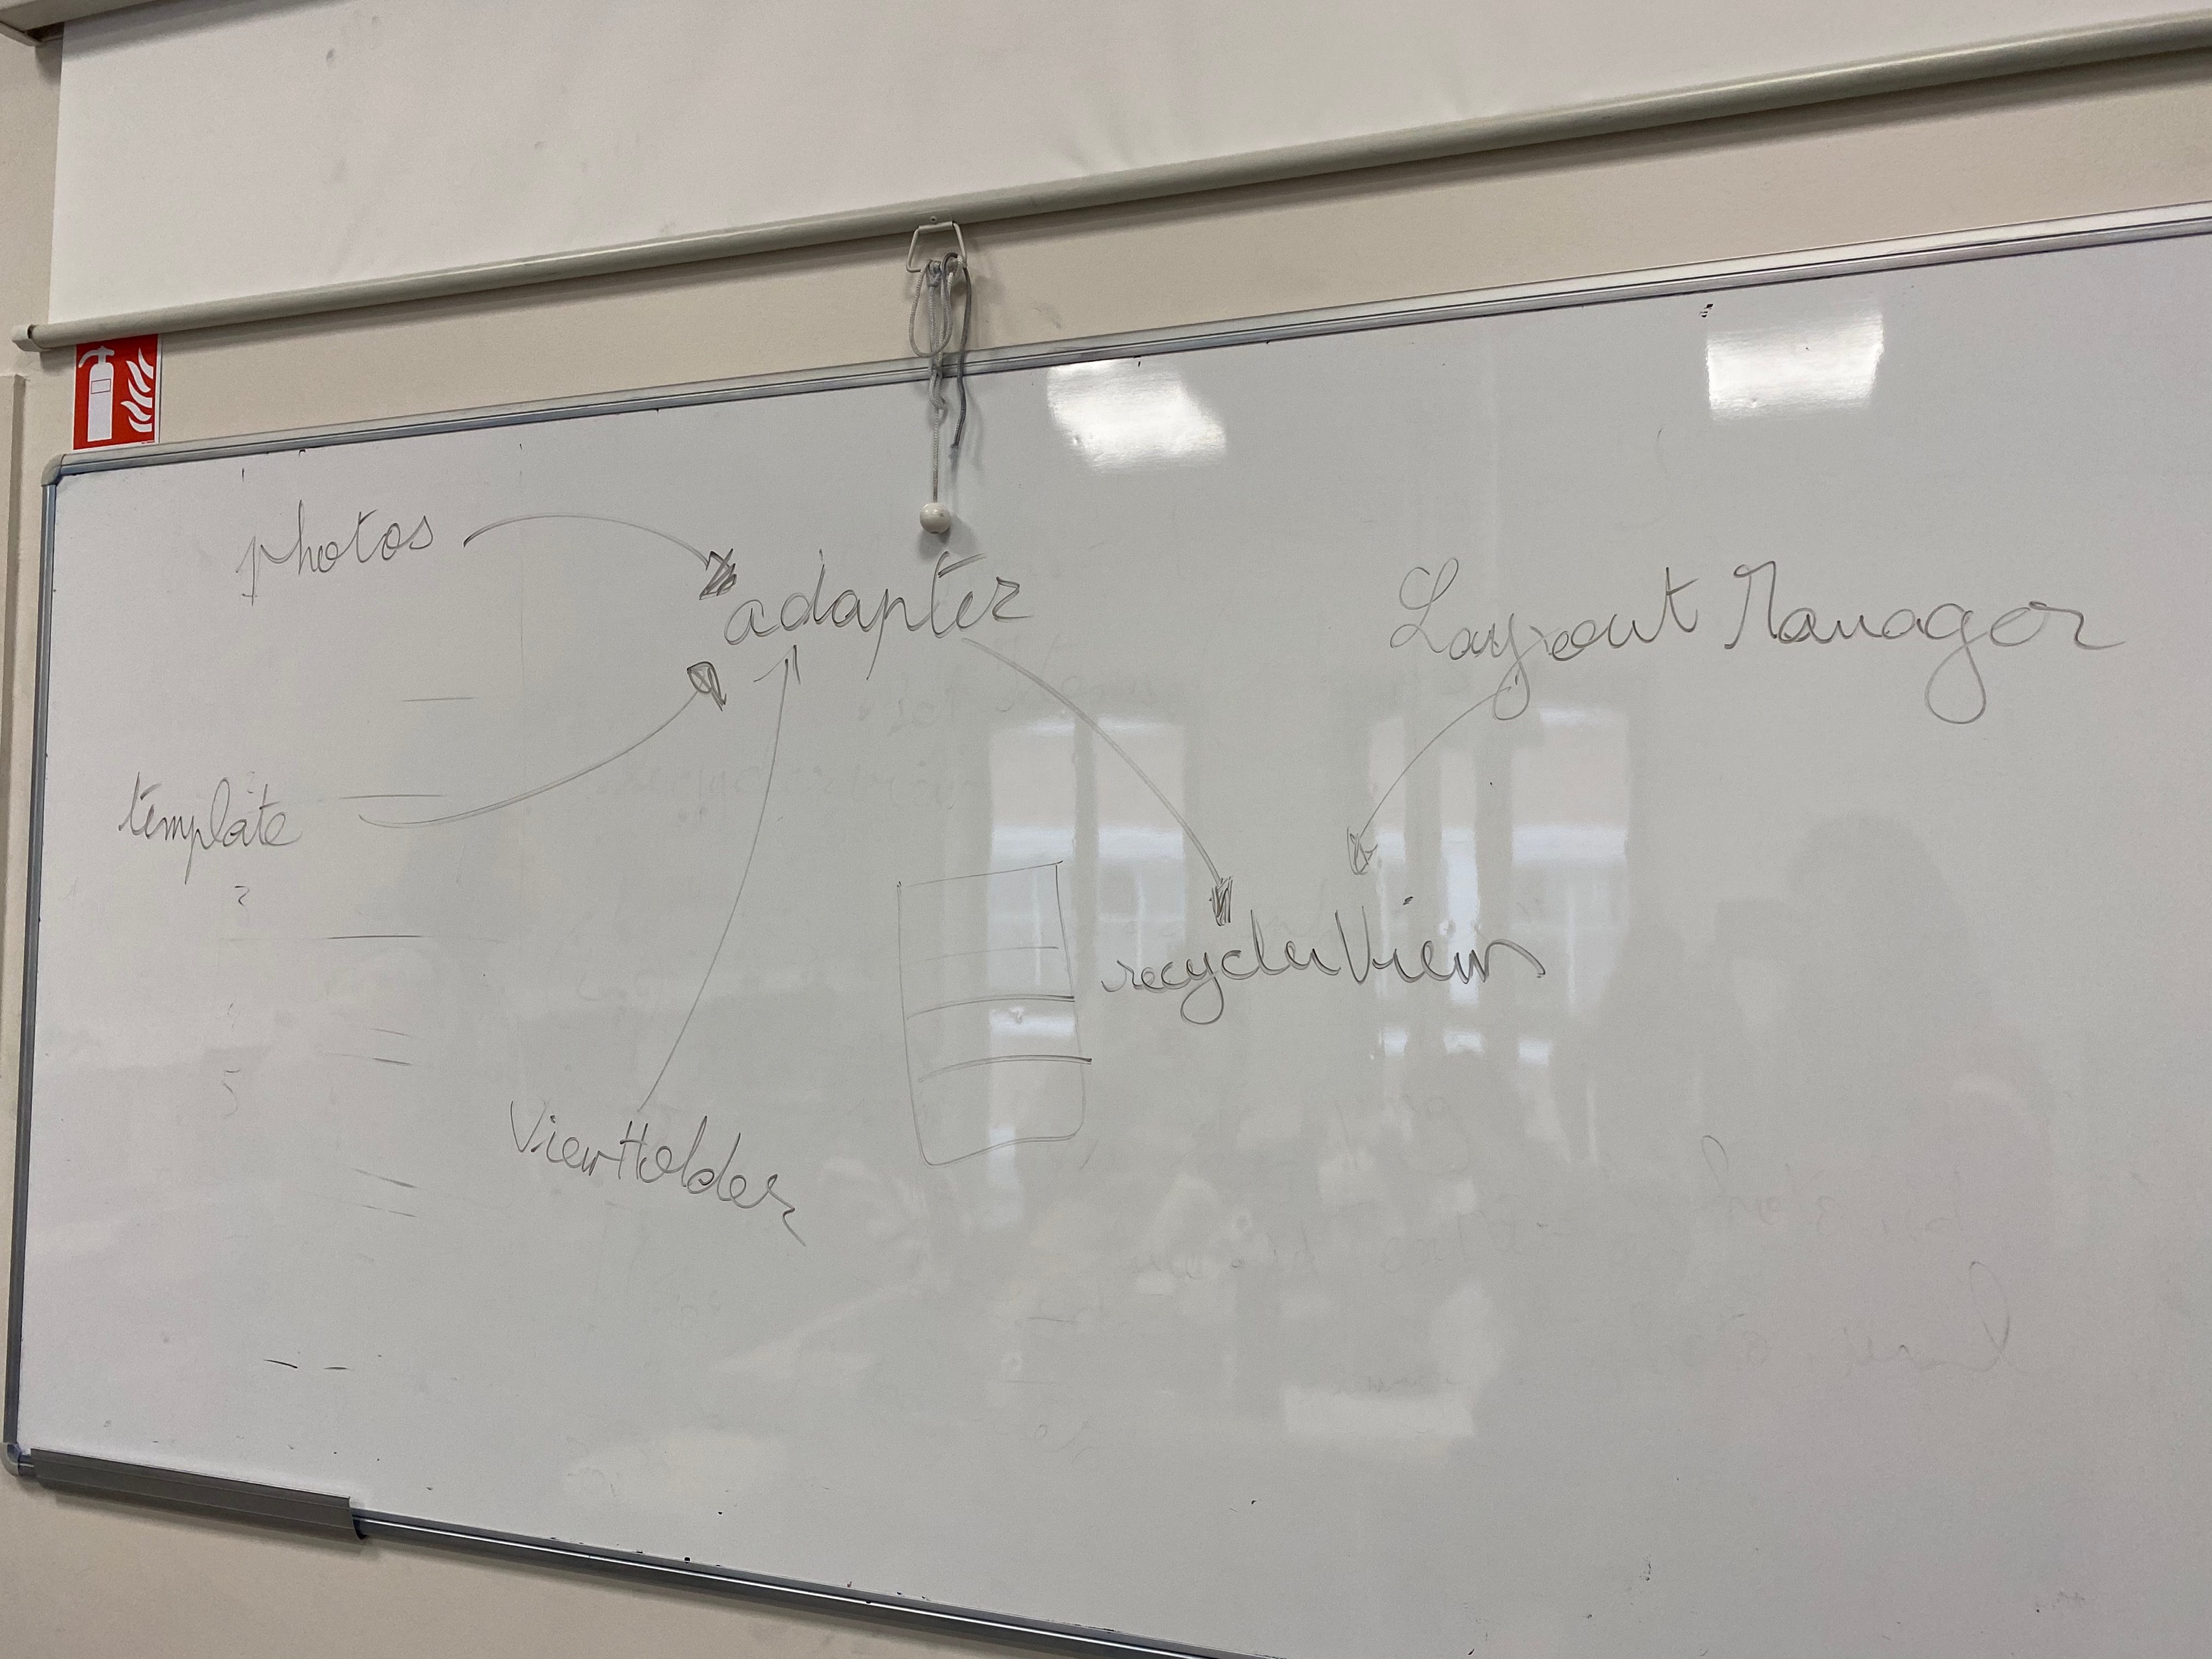 photos
adapter
Layout Manager
template
recyclerView
ViewHolder